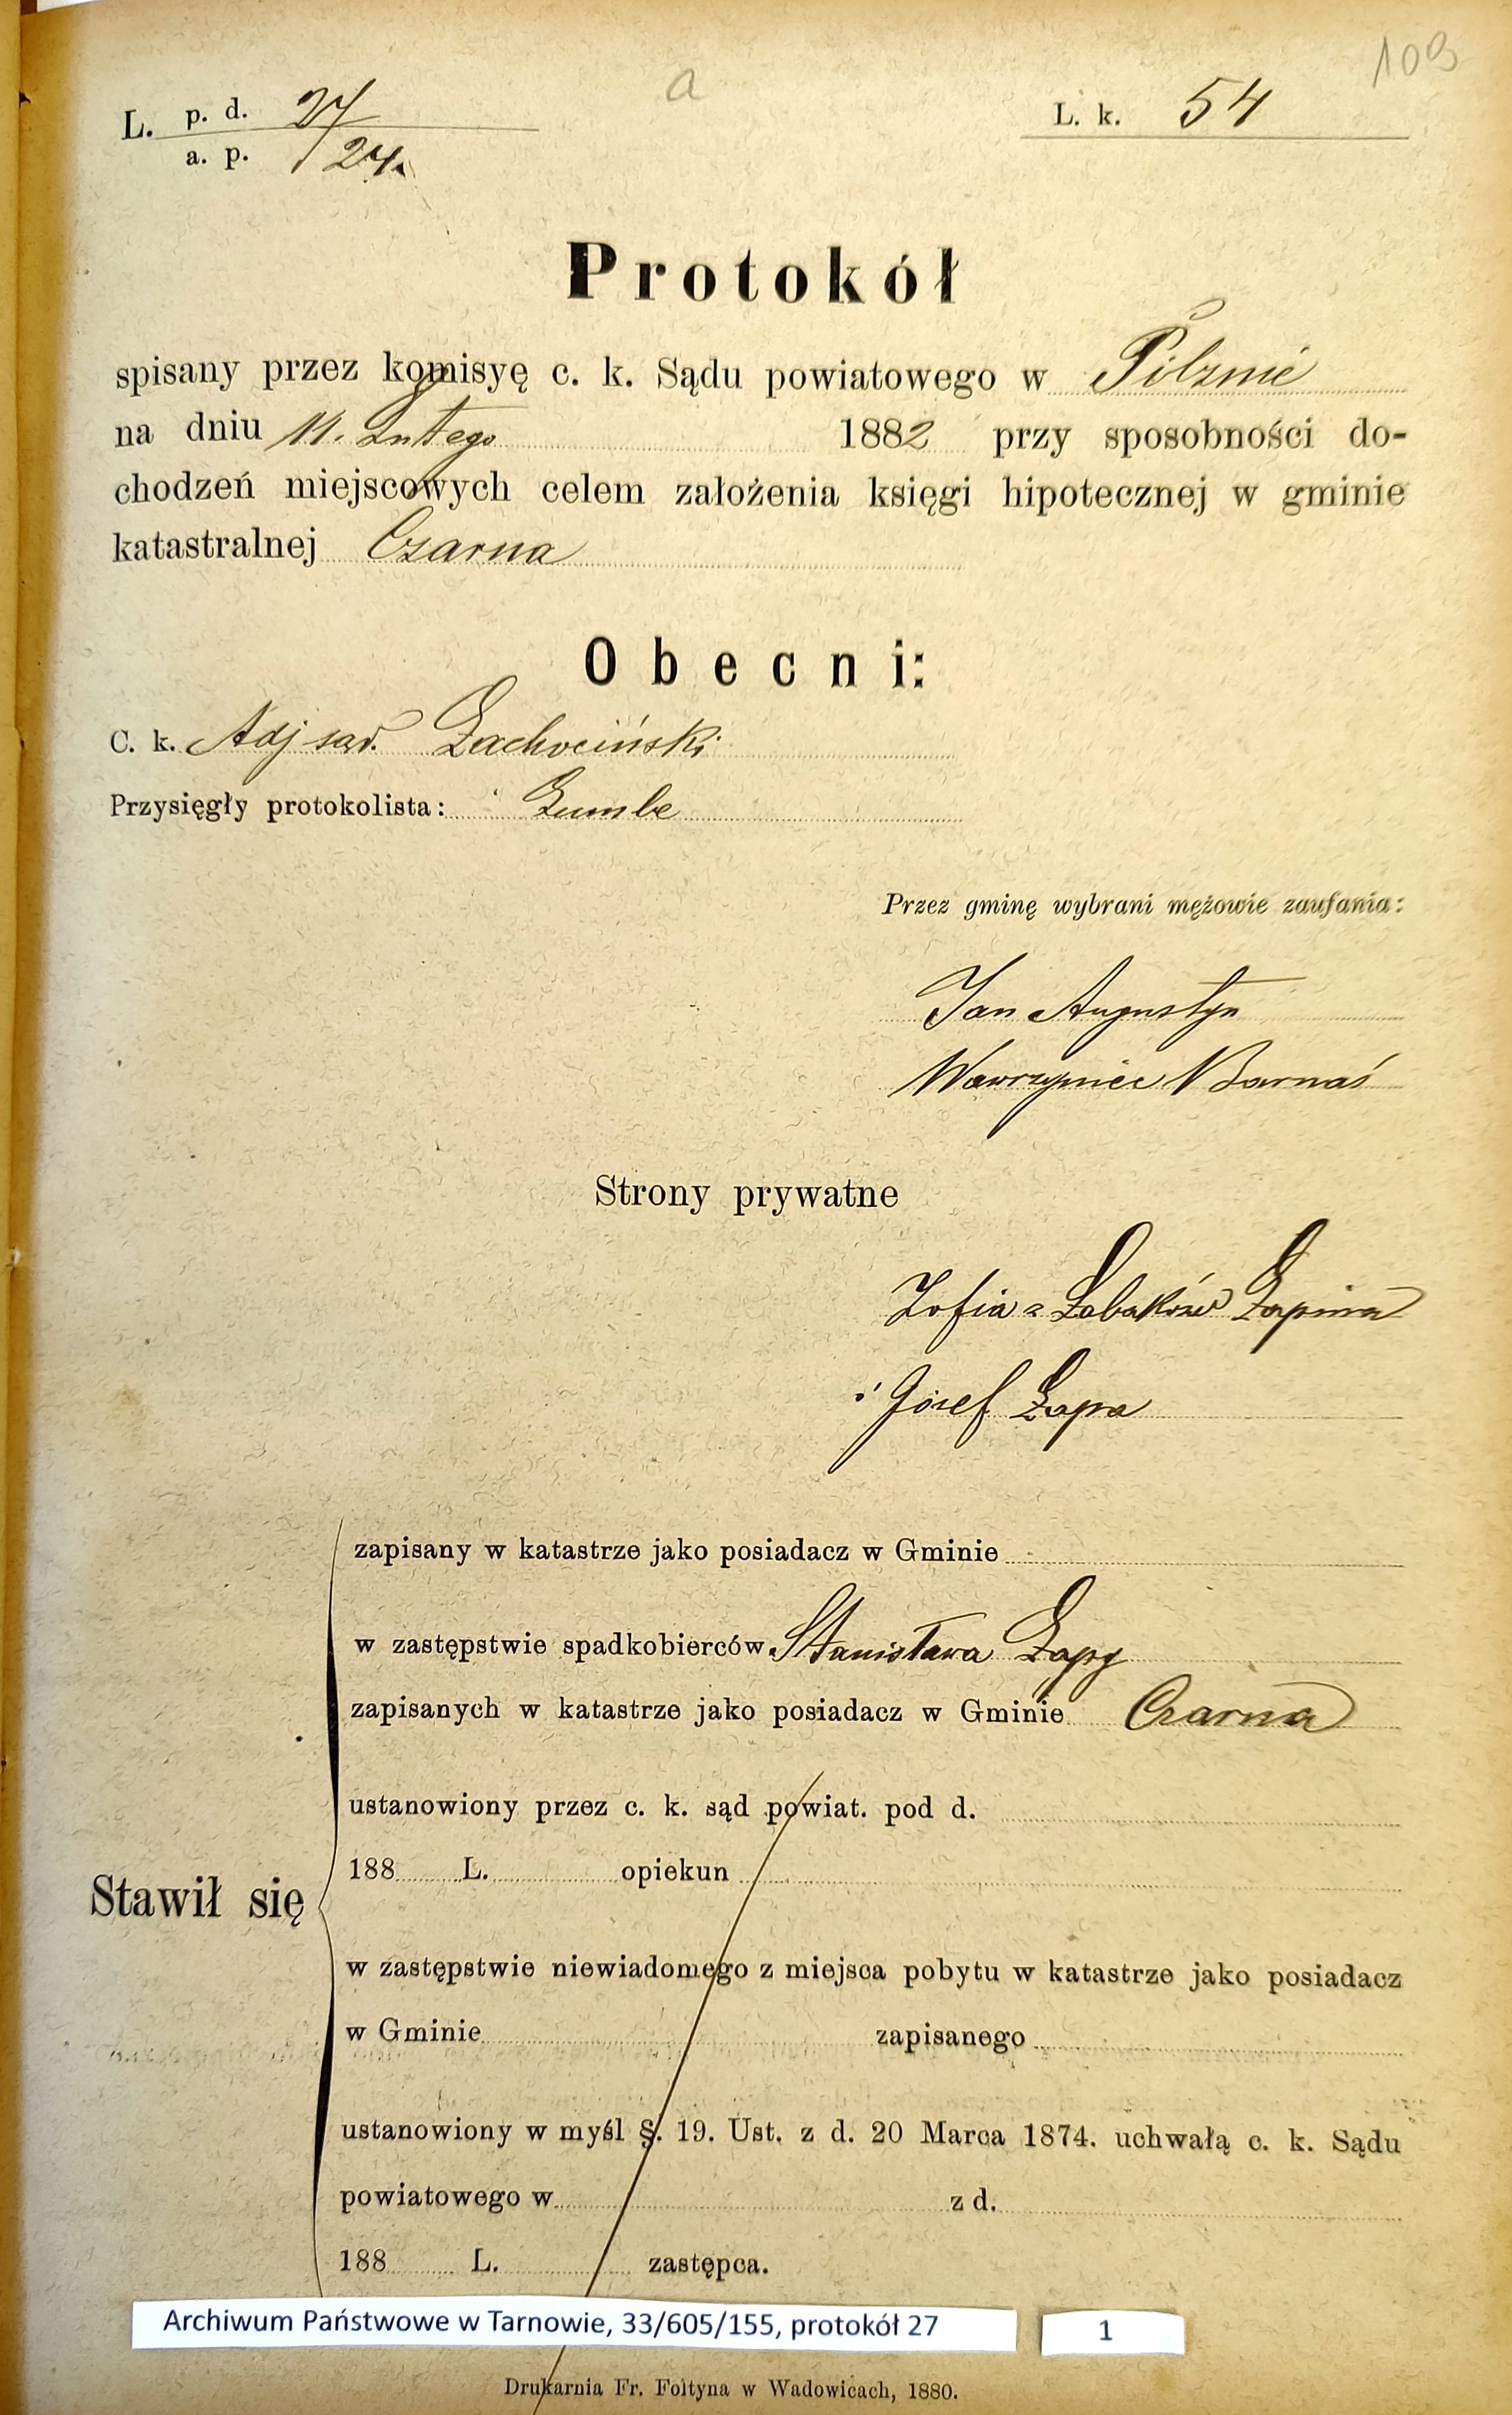 109
a
L. p. d. 27/
a. p. /24.
L. k. 54
Protokół
spisany przez komisyę c. k. Sądu powiatowego w Pilznie
na dniu 11. Lutego 1882 przy sposobności do-
chodzeń miejscowych celem założenia księgi hipotecznej w gminie
katastralnej Czarna
Obecni:
C. k. Adj sąd. Łachociński
Przysięgły protokolista: Zumbe
Przez gminę wybrani mężowie zaufania:
Jan Augustyn
Wawrzyniec Barnaś
Strony prywatne
Zofia z Łabaków Łapina
i Józef Łapa
zapisany w katastrze jako posiadacz w Gminie
w zastępstwie spadkobierców Stanisława Łapy
zapisanych w katastrze jako posiadacz w Gminie Czarna
ustanowiony przez c. k. sąd powiat. pod d.
188 L. opiekun
Stawił się
w zastępstwie niewiadomego z miejsca pobytu w katastrze jako posiadacz
w Gminie zapisanego
ustanowiony w myśl §. 19. Ust. z d. 20 Marca 1874. uchwałą c. k. Sądu
powiatowego w z d.
188 L. zastępca.
Archiwum Państwowe w Tarnowie, 33/605/155, protokół 27
1
Drukarnia Fr. Foltyna w Wadowicach, 1880.